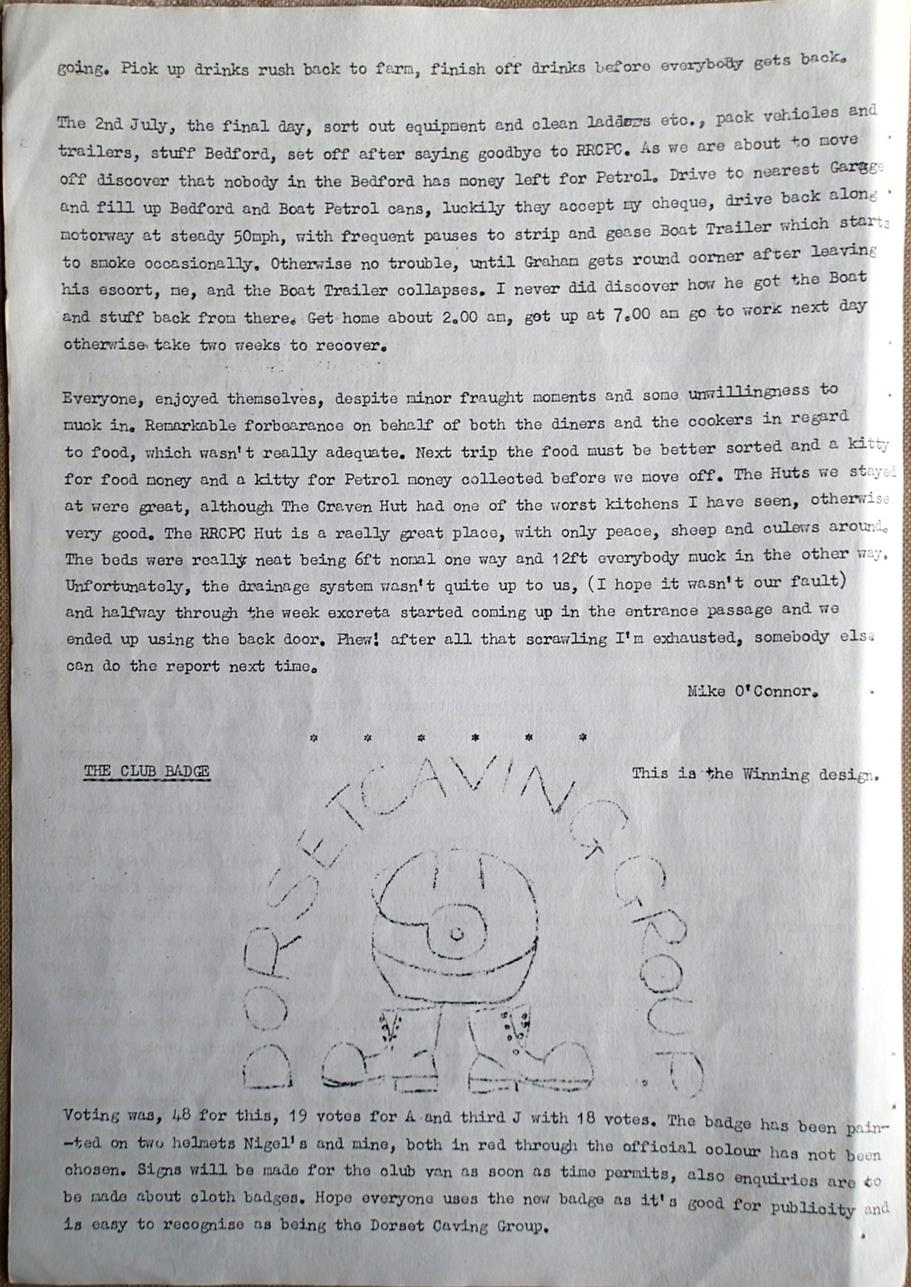 going. Pick up drinks rush back to farm, finish off drinks before everybody gets back.
The 2nd July, the final day, sort out equipment and clean ladders etc., pack vehicles and
trailers, stuff Bedford, set off after saying goodbye to RRCPC. As we are about to move
off discover that nobody in the Bedford has money left for Petrol. Drive to nearest Garage
and fill up Bedford and Boat Petrol cans, luckily they accept my cheque, drive back along
motorway at steady 50mph, with frequent pauses to strip and gease Boat Trailer which starts
to smoke occasionally. Otherwise no trouble, until Graham gets round corner after leaving
his escort, me, and the Boat Trailer collapses. I never did discover how he got the Boat
and stuff back from there. Get home about 2.00 am, got up at 7.00 am go to work next day
otherwise take two weeks to recover.
Everyone, enjoyed themselves, despite minor fraught moments and some unwillingness to
muck in. Remarkable forbearance on behalf of both the diners and the cookers in regard
to food, which wasn't really adequate. Next trip the food must be better sorted and a kitty
for food money and a kitty for Petrol money collected before we move off. The Huts we stayed
at were great, although The Craven Hut had one of the worst kitchens I have seen, otherwise
very good. The RRCPC Hut is a raelly great place, with only peace, sheep and culews around.
The beds were really neat being 6ft nomal one way and 12ft everybody muck in the other way.
Unfortunately, the drainage system wasn't quite up to us, (I hope it wasn't our fault)
and halfway through the week excreta started coming up in the entrance passage and we
ended up using the back door. Phew! after all that scrawling I'm exhausted, somebody else
can do the report next time.
Mike O'Connor.
* * * * * *
THE CLUB BADGE This is the Winning design.
DORSET CAVING GROUP
Voting was, 48 for this, 19 votes for A and third J with 18 votes. The badge has been pain-
-ted on two helmets Nigel's and mine, both in red through the official colour has not been
chosen. Signs will be made for the club van as soon as time permits, also enquiries are to
be made about cloth badges. Hope everyone uses the new badge as it's good for publicity and
is easy to recognise as being the Dorset Caving Group.